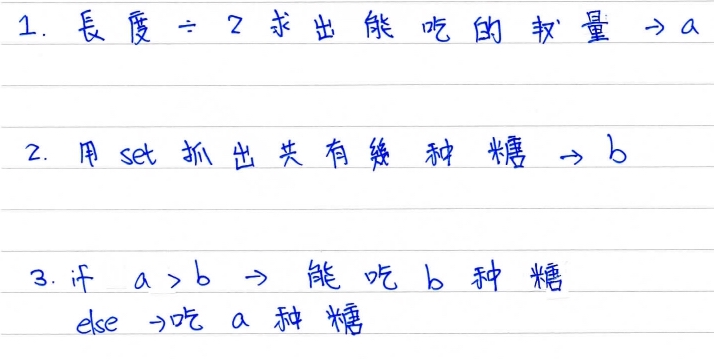 1. 長度 ÷ 2 求出能吃的数量 → a
2. 用 set 抓出共有幾种糖 → b
3. if a > b → 能吃 b 种糖
else → 吃 a 种糖